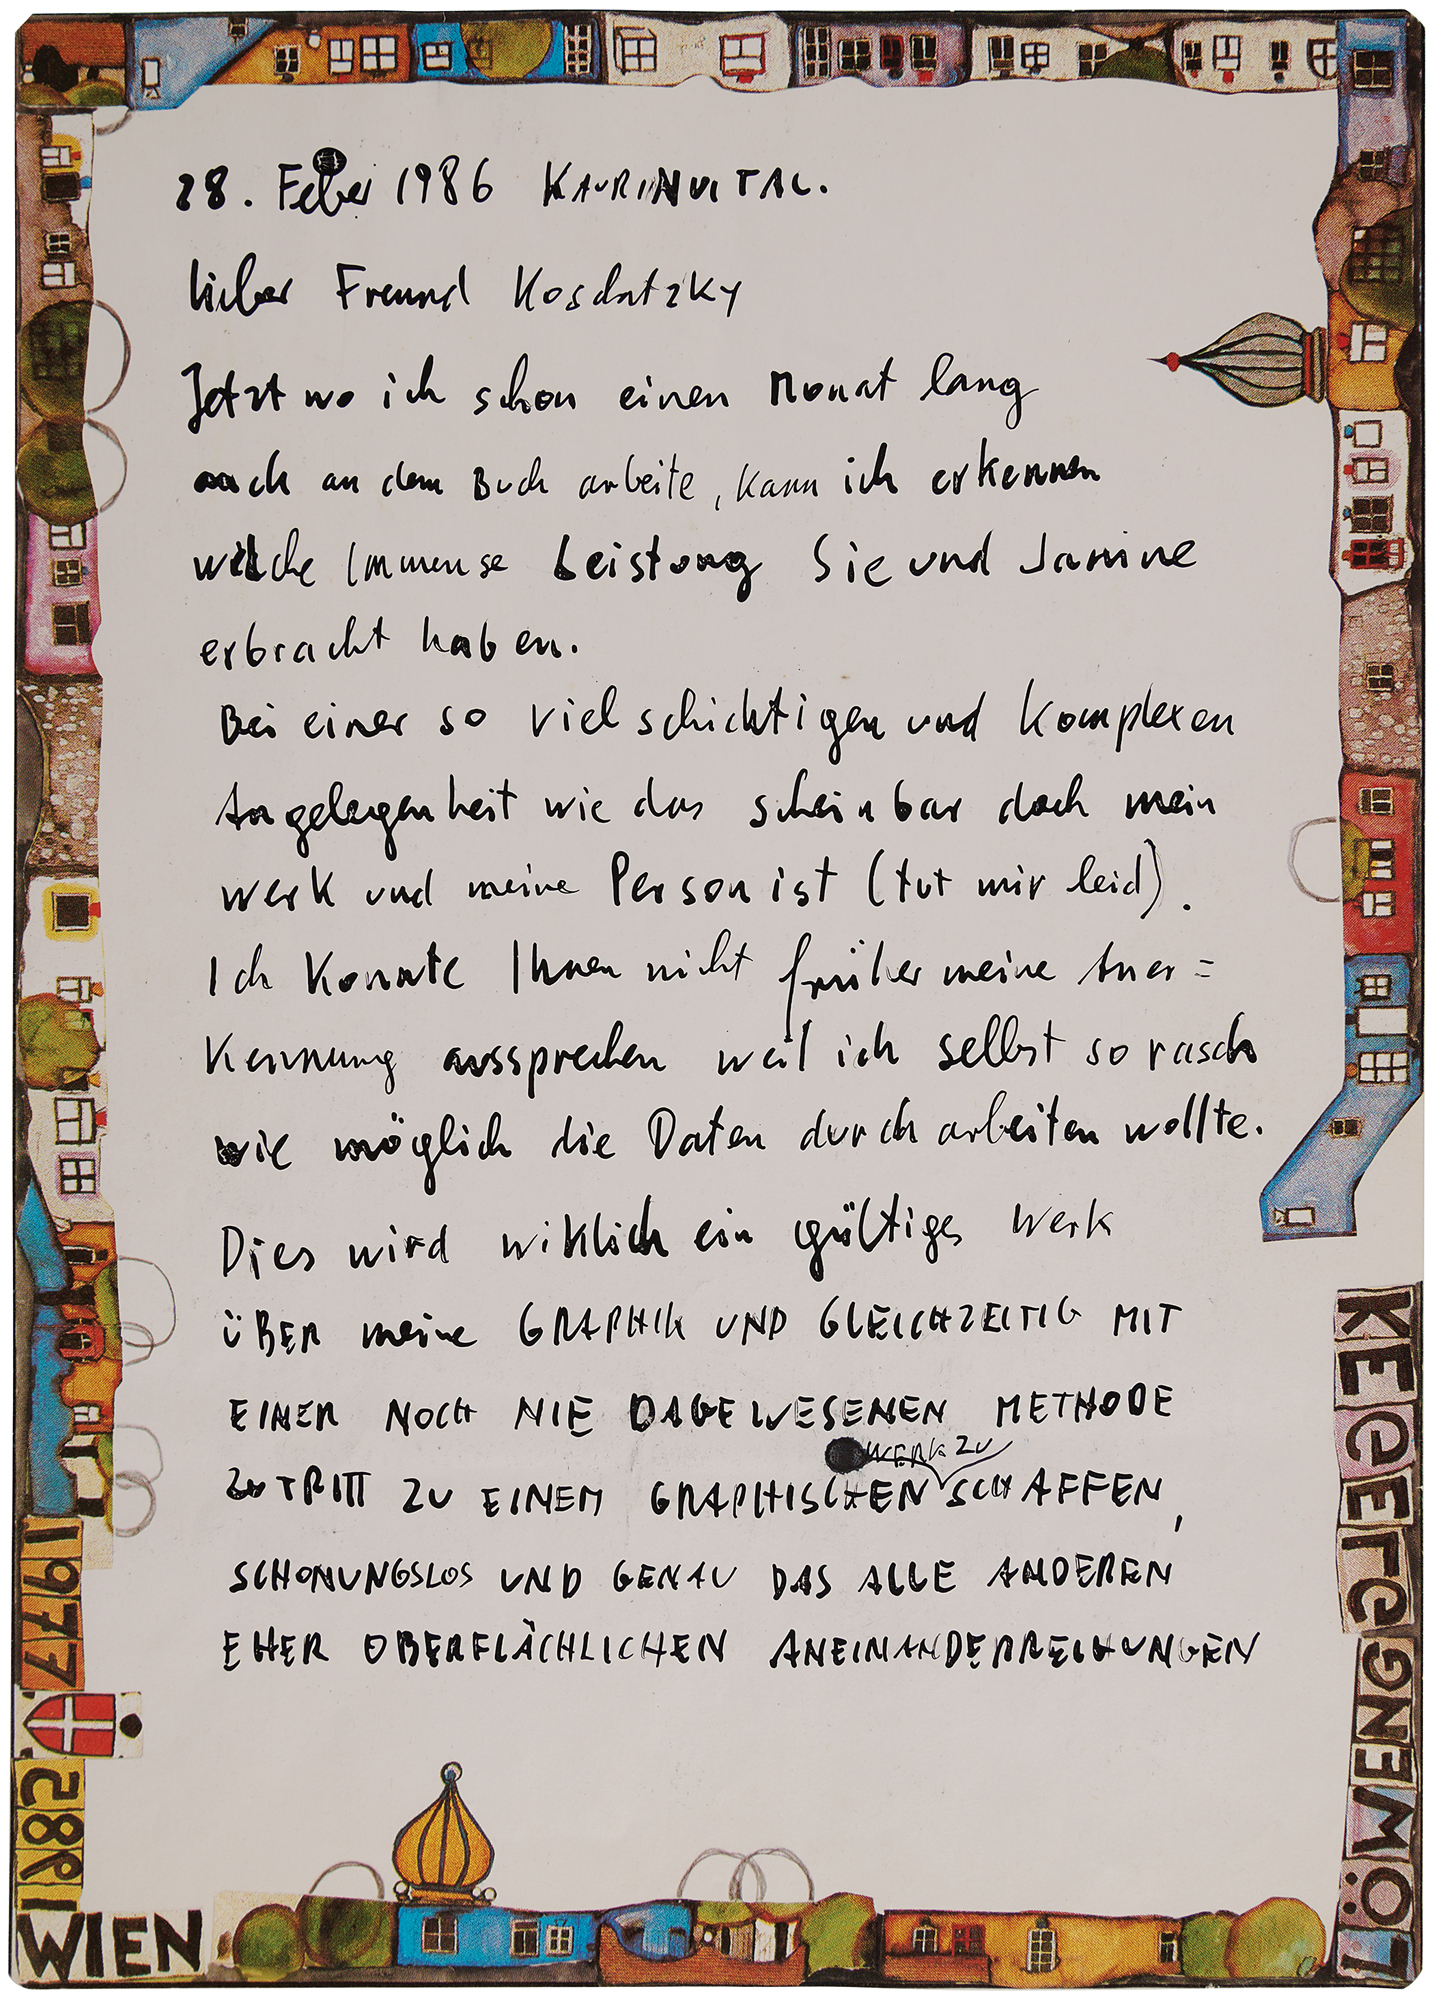 28. Feber 1986 KAURINUI TAL.
Lieber Freund Koschatzky
Jetzt wo ich schon einen Monat lang
auch an dem Buch arbeite, kann ich erkennen
welche Immense Leistung Sie und Janine
erbracht haben.
Bei einer so vielschichtigen und komplexen
Angelegenheit wie das scheinbar doch mein
Werk und meine Person ist (tut mir leid).
Ich konnte Ihnen nicht früher meine Aner=
kennung aussprechen weil ich selbst so rasch
wie möglich die Daten durcharbeiten wollte.
Dies wird wiklich ein gültiges Werk
ÜBER meine GRAPHIK UND GLEICHZEITIG MIT
EINER NOCH NIE DAGEWESENEN METHODE
WERK ZU
ZUTRITT ZU EINEM GRAPHISCHEN SCHAFFEN,
SCHONUNGSLOS UND GENAU DAS ALLE ANDEREN
EHER OBERFLÄCHLICHEN ANEINANDERREIHUNGEN
KEGELGASSE
LÖWENG
1977
1982
WIEN